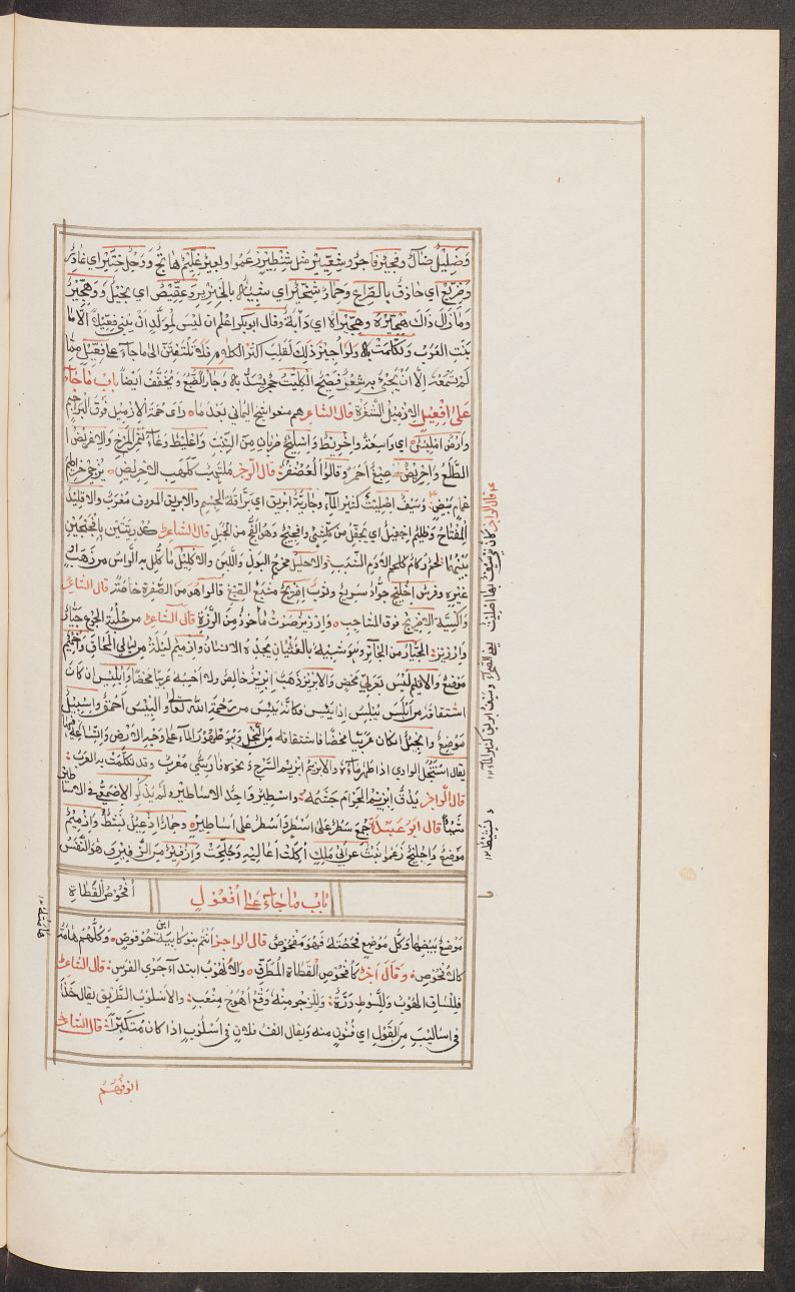 وَضِلِّيلٌ ضَالٌّ وفِجِّيرٌ فَاجِرٌ وشِعِّيرٌ مثل شِنْظِيرٍ زعموا وبعير غِلِّيمٌ هَائجٌ وَرَجُلٌ خِتِّيرٌ اي غَادِرٌ
اي حَاذِقٌ بالفِرَاخ وحِمَارٌ شِخِّيرٌ اي شبيه بالخِنزير وَعِقِّيصٌ اي بَخِيلٌ وهِجِّيرٌ
وَمَا زَالَ ذَاكَ هِجِّيرَهُ وهِجِّيرَاهُ اي دَأبَهُ وقال ابوبكر اعلم ان ليس لِمُوَلَّدٍ انْ يَبنِي فِعِّيلًا اِلّا مَا
بَنَتِ العَرَبُ وتَكَلَّمَتْ به ولَو اُجِيزَ ذَلِكَ لَقُلِبَ اكثرُ الكلام فلا تَلْتَفِتَنَّ الى مَا جَآءَ على فِعِّيلٍ مِمَّا
لَمْ تَسْمَعْهُ اِلَّا انْ يَجِيءَ به شِعْرٌ فَصِيحٌ الكِلِّيتُ حجر يُسَدُّ به وِجَارُ الضَّبُعِ وَيُخَفَّفُ ايضاً باب مَا جَآءَ
عَلَى اِفْعِيلٍ الاِزْمِيلُ الشَّفْرَةُ قال الشاعر هم منعوا الشيخ اليماني بعد ما رَاى حُمَةَ الاِزْمِيلِ فوق البَرَاجِمِ
وارض اِمْلِيسٌ اي واسِعَةٌ واِخْرِيطٌ وَاِسْلِيحٌ ضربان من النَّبْتِ وَاِغْلِيظٌ وِعَاءُ ثَمَرِ المَرْخِ والاغريض
الطَّلْعُ واِحْرِيضٌ صِبْغٌ احمر وقالوا العُصْفُرُ قال الراجز مُلْتَهِبٌ كَلَهَبِ الاِحْرِيضِ يُزْجِي خَرَاطِيمَ
غَمَامٍ بِيضٍ وَسَيفٌ اِصْلِيتٌ كثير المآء وجارية اِبْرِيقٌ اي بَرَّاقَةُ الجِسْمِ والابريق المعروف مُعَرَّبٌ والاِقْلِيدُ
المِفْتَاحُ وَظَلِيمٌ اِجْفِيلٌ اي يَجْفِلُ من كل شيء واِفْجِيجٌ وَهُوَ الفَجُّ من الجبل قال الشاعر
بَيْنَهُمَا والاِحْلِيلُ مخرج البَوْلِ واللَّبَنِ والاِكْلِيلُ مَا كُلِّلَ به الراس من ذَهَبٍ
غيره وفرس اِخْلِيجٌ جوادٌ سريع وثوب اِضْرِيجٌ مُشْبَعُ الصِّبْغِ قالوا هو من الصُّفْرَةِ خاصةً قال الشاعر
وَاَكْسِيَةُ الاِضْرِيجِ فوق المشاجِبِ وَاِرْزِيزٌ صَوتٌ مأخوذ من الرِّزَّةِ قال الشاعر من جُلْبَةِ الجوع جَيَّارٌ
وَاِرْزِيزُ الجَيَّارُ من الجَائِر وهو شبيه بالغَثَيَانِ يجده الانسان واِزْمِيمٌ لَيْلَةٌ من ليالي المحاق وَاِزْمِيمٌ
موضع والاِبْلِيمُ ليس بعربي محض والابريز ذَهَبٌ اِبريز خالص ولا احسبه عربيا محضا واِبْلِيسُ ان كان
اشتقاقه من اَبْلَسَ يُبْلِسُ اِذا يَئِسَ فكأنه يَئِسَ من رحمة الله تعالى واِلْبِيسٌ اَحْمَقُ واِسْبِيلٌ
مَوْضِعٌ واِنْجِيلٌ ان كان عربيا محضا فاشتقاقه مِن النَّجْلِ وَهو ظهور المآء على وجه الارض واِتساعه
يقال اِسْتَنْجَلَ الوادي اِذا ظهر مآؤه والابريم اِبريم السَّرْج ونحوه فارسيٌّ معرب وقد تكلمت به العرب
قال الراجز يَدُقُّ اِبْزِيمَ الحِزَامِ جُشَمُه واِسطِيرٌ واحد الاساطير لم يذكر الاَصْمَعِيُّ في الاساطير
شيئًا قال اَبُو عُبَيْدَةَ جُمِعَ سَطْرٌ على اَسْطُرٍ وَاَسْطُرٌ على اَسَاطِيرَ وحِمَارٌ اِزْعِيلٌ نَشِيطٌ وَاِزْمِيمٌ
موضع وَاِجْلِيحٌ زعموا نَبْتٌ عربيٌّ اُكِلَتْ اَعَالِيهِ وَجُلِحَتْ وَاِزْفِيرٌ مِنَ الزَّفِيرِ وهو النَّفَسُ
باب ما جاء على اُفْعُولٍ اُفْحُوصُ القَطَاةِ
موضع بيضها وكل موضع فحصته فهو مَفْحُوصٌ قال الراجز اَنْتُمْ بنو كابية ابن حُرقوصٍ وَكُلُّهُمْ هَامَتُهُ
كالاُفْحُوصِ وقَالَ آخر كاُفْحُوصِ القَطَاةِ المُطَرِّقِ والاُلْهُوبُ ابتدآء جَري الفَرَسِ قال الشاعر
فللساق اُلهوبٌ وللسَّوطِ دِرَّةٌ وللزجر منه وَقْعُ اَهْوَجَ مِنْعَبِ والاُسلوب الطريق يقال خُذْ
في اَسَالِيبَ من القَوْلِ اي فُنُونٍ منه ويقال انف فلان في اُسْلُوبٍ اذا كان مُتَكَبِّرًا قال الشاعر
انوفهُم